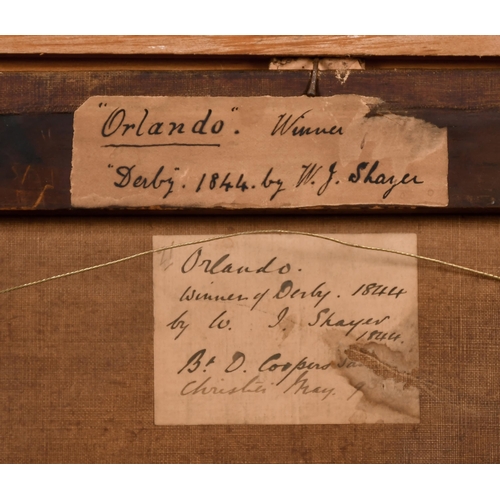 "Orlando". Winner
"Derby. 1844. by W. J. Shayer
Orlando.
Winner of Derby. 1844
by W. J. Shayer
1844.
Bt D. Coopers
Christies May